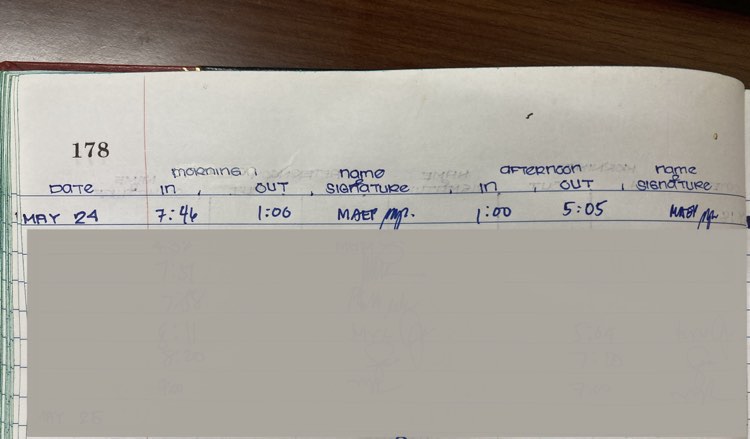 178
MORNING NAME AFTERNOON NAME
DATE IN, OUT, SIGNATURE, IN, OUT, SIGNATURE
MAY 24 7:46 1:00 MAEP 1:00 5:05